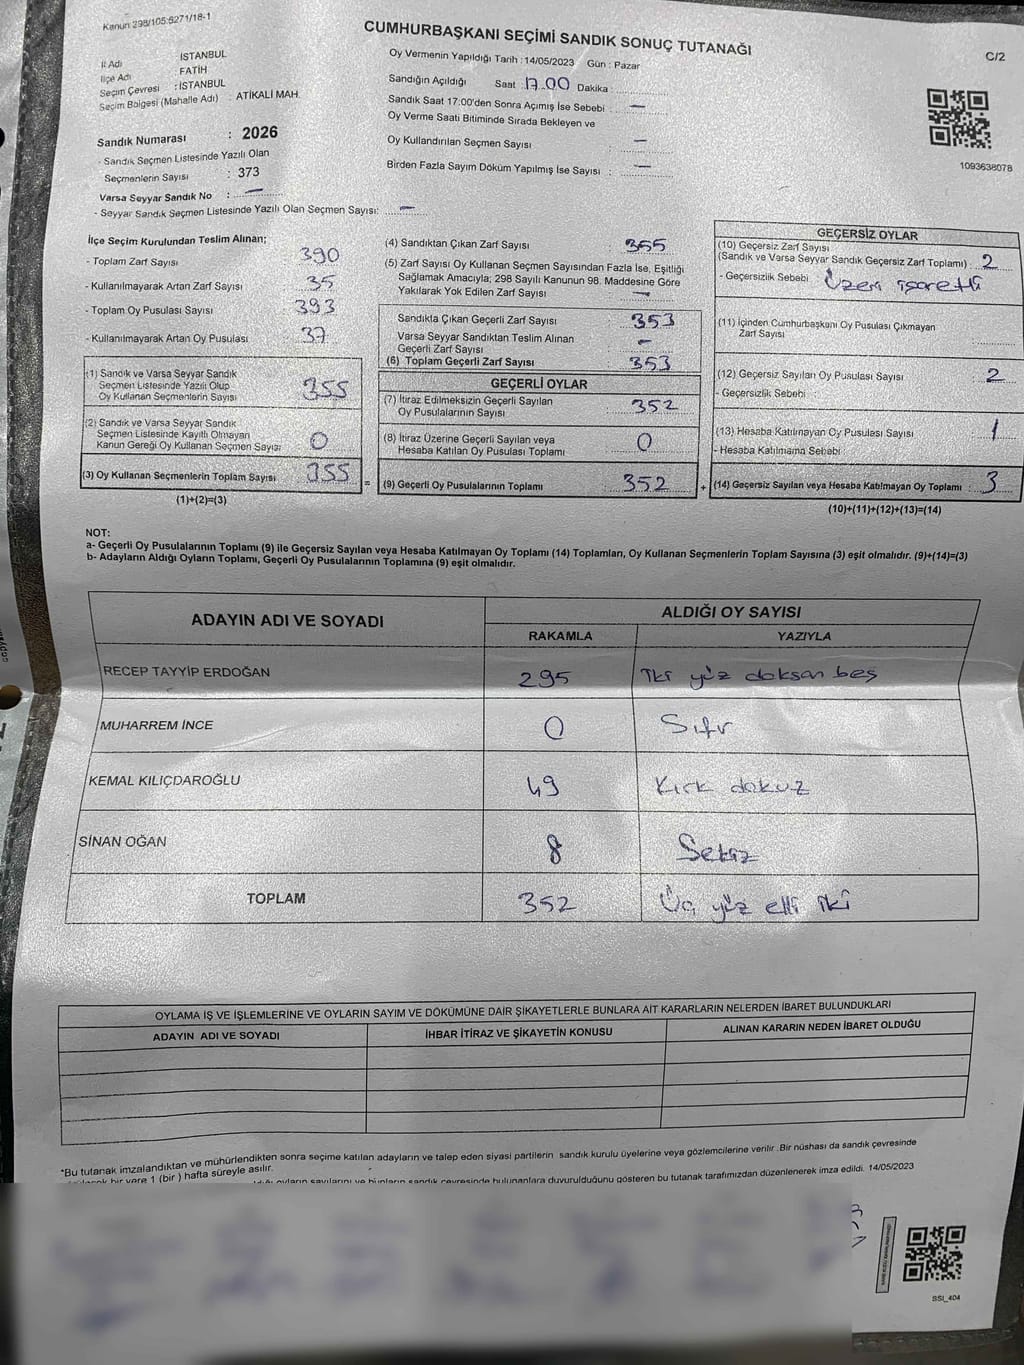 Kanun 298/105:5271/18-1
CUMHURBAŞKANI SEÇİMİ SANDIK SONUÇ TUTANAĞI
C/2
İl Adı : İSTANBUL
İlçe Adı : FATİH
Seçim Çevresi : İSTANBUL
Seçim Bölgesi (Mahalle Adı) : ATİKALİ MAH.
Sandık Numarası : 2026
- Sandık Seçmen Listesinde Yazılı Olan
Seçmenlerin Sayısı : 373
Varsa Seyyar Sandık No : —
- Seyyar Sandık Seçmen Listesinde Yazılı Olan Seçmen Sayısı: —
Oy Vermenin Yapıldığı Tarih : 14/05/2023 Gün : Pazar
Sandığın Açıldığı Saat 17.00 Dakika :
Sandık Saat 17:00'den Sonra Açımış İse Sebebi : —
Oy Verme Saati Bitiminde Sırada Bekleyen ve
Oy Kullandırılan Seçmen Sayısı : —
Birden Fazla Sayım Döküm Yapılmış İse Sayısı : —
1093638078
İlçe Seçim Kurulundan Teslim Alınan;
- Toplam Zarf Sayısı : 390
- Kullanılmayarak Artan Zarf Sayısı : 35
- Toplam Oy Pusulası Sayısı : 393
- Kullanılmayarak Artan Oy Pusulası : 37
(1) Sandık ve Varsa Seyyar Sandık
Seçmen Listesinde Yazılı Olup
Oy Kullanan Seçmenlerin Sayısı : 355
(2) Sandık ve Varsa Seyyar Sandık
Seçmen Listesinde Kayıtlı Olmayan
Kanun Gereği Oy Kullanan Seçmen Sayısı : 0
(3) Oy Kullanan Seçmenlerin Toplam Sayısı : 355
(1)+(2)=(3)
(4) Sandıktan Çıkan Zarf Sayısı : 355
(5) Zarf Sayısı Oy Kullanan Seçmen Sayısından Fazla İse, Eşitliği
Sağlamak Amacıyla, 298 Sayılı Kanunun 98. Maddesine Göre
Yakılarak Yok Edilen Zarf Sayısı : —
Sandıkta Çıkan Geçerli Zarf Sayısı : 353
Varsa Seyyar Sandıktan Teslim Alınan
Geçerli Zarf Sayısı : -
(6) Toplam Geçerli Zarf Sayısı : 353
GEÇERLİ OYLAR
(7) İtiraz Edilmeksizin Geçerli Sayılan
Oy Pusulalarının Sayısı : 352
(8) İtiraz Üzerine Geçerli Sayılan veya
Hesaba Katılan Oy Pusulası Toplamı : 0
= (9) Geçerli Oy Pusulalarının Toplamı : 352
GEÇERSİZ OYLAR
(10) Geçersiz Zarf Sayısı
(Sandık ve Varsa Seyyar Sandık Geçersiz Zarf Toplamı) : 2
- Geçersizlik Sebebi : Üzeri işaretli
(11) İçinden Cumhurbaşkanı Oy Pusulası Çıkmayan
Zarf Sayısı :
(12) Geçersiz Sayılan Oy Pusulası Sayısı : 2
- Geçersizlik Sebebi :
(13) Hesaba Katılmayan Oy Pusulası Sayısı : 1
- Hesaba Katılmama Sebebi :
+ (14) Geçersiz Sayılan veya Hesaba Katılmayan Oy Toplamı : 3
(10)+(11)+(12)+(13)=(14)
NOT:
a- Geçerli Oy Pusulalarının Toplamı (9) ile Geçersiz Sayılan veya Hesaba Katılmayan Oy Toplamı (14) Toplamları, Oy Kullanan Seçmenlerin Toplam Sayısına (3) eşit olmalıdır. (9)+(14)=(3)
b- Adayların Aldığı Oyların Toplamı, Geçerli Oy Pusulalarının Toplamına (9) eşit olmalıdır.
ADAYIN ADI VE SOYADI
ALDIĞI OY SAYISI
RAKAMLA YAZIYLA
RECEP TAYYİP ERDOĞAN 295 İki yüz doksan beş
MUHARREM İNCE 0 Sıfır
KEMAL KILIÇDAROĞLU 49 Kırk dokuz
SİNAN OĞAN 8 Sekiz
TOPLAM 352 Üç yüz elli iki
OYLAMA İŞ VE İŞLEMLERİNE VE OYLARIN SAYIM VE DÖKÜMÜNE DAİR ŞİKAYETLERLE BUNLARA AİT KARARLARIN NELERDEN İBARET BULUNDUKLARI
ADAYIN ADI VE SOYADI İHBAR İTİRAZ VE ŞİKAYETİN KONUSU ALINAN KARARIN NEDEN İBARET OLDUĞU
*Bu tutanak imzalandıktan ve mühürlendikten sonra seçime katılan adayların ve talep eden siyasi partilerin sandık kurulu üyelerine veya gözlemcilerine verilir. Bir nüshası da sandık çevresinde
bir yere 1 (bir) hafta süreyle asılır.
oyların sayılarını ve bunların sandık çevresinde bulunanlara duyurulduğunu gösteren bu tutanak tarafımızdan düzenlenerek imza edildi. 14/05/2023
SSI_404